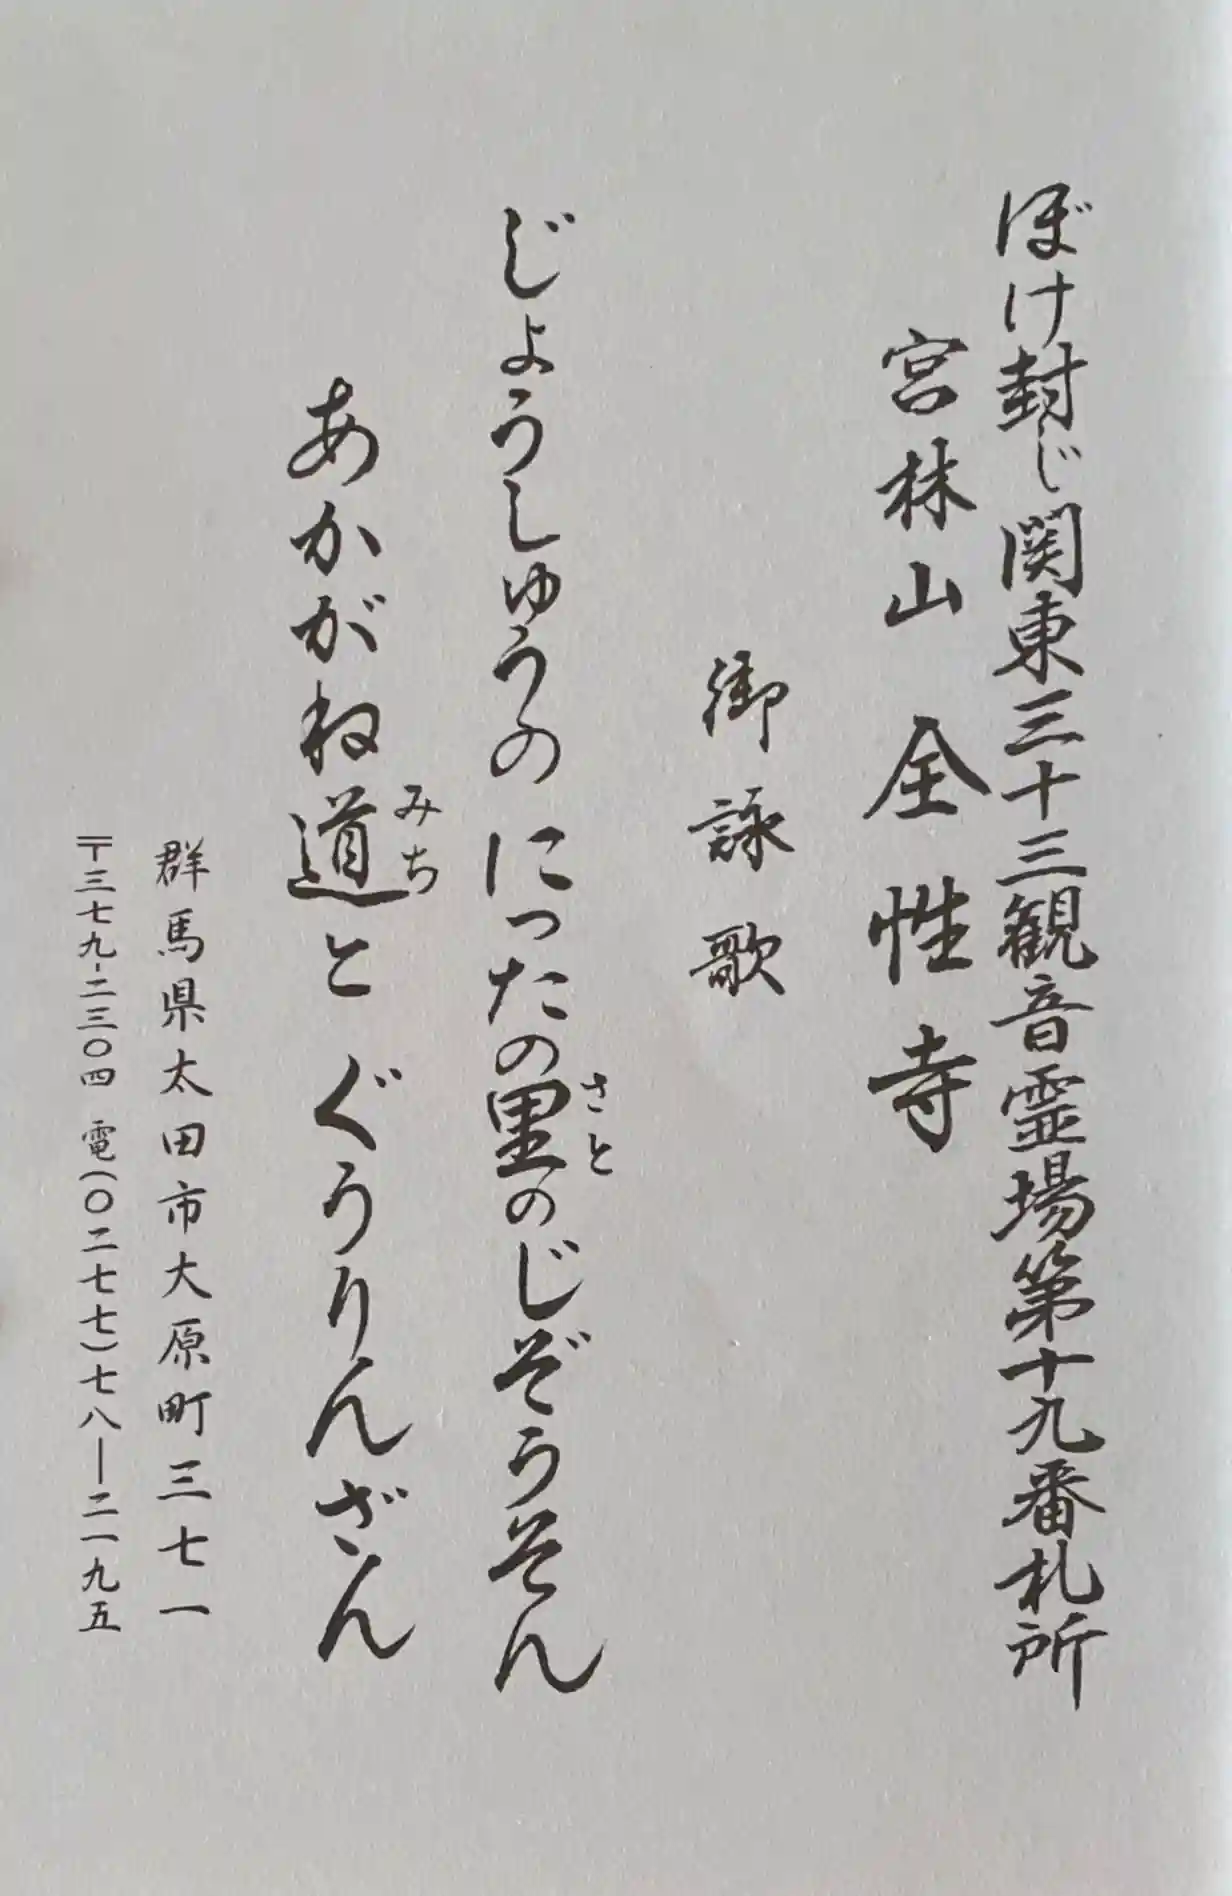 ぼけ封じ関東三十三観音霊場第十九番札所
宮林山 全性寺
御詠歌
じょうしゅうの にったの里のじぞうそん
さと
あかがね道と ぐうりんざん
みち
群馬県太田市大原町三七一
〒三七九-二三〇四 電(〇二七七)七八―二一九五